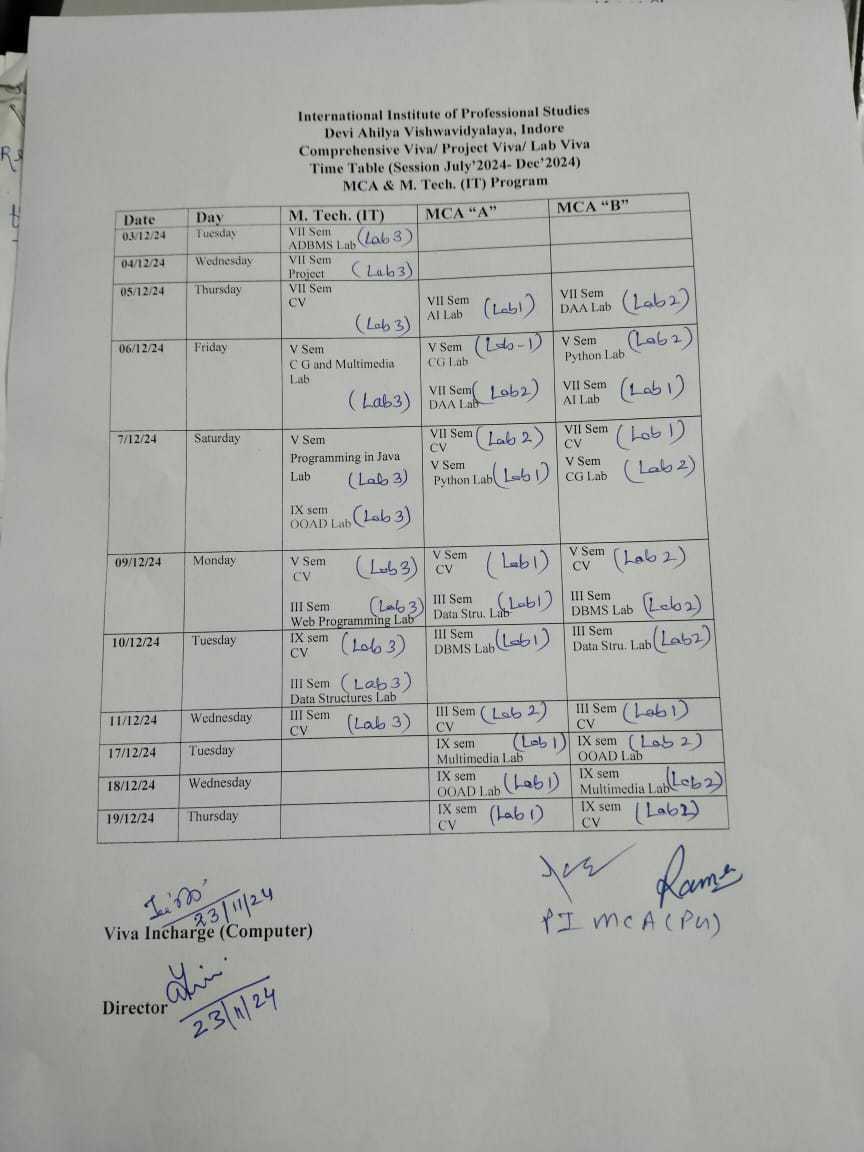 International Institute of Professional Studies
Devi Ahilya Vishwavidyalaya, Indore
Comprehensive Viva/ Project Viva/ Lab Viva
Time Table (Session July'2024- Dec'2024)
MCA & M. Tech. (IT) Program
Date Day M. Tech. (IT) MCA "A" MCA "B"
03/12/24 Tuesday VII Sem
ADBMS Lab (Lab 3)
04/12/24 Wednesday VII Sem
Project (Lab 3)
05/12/24 Thursday VII Sem
CV
(Lab 3)
VII Sem
AI Lab (Lab 1)
VII Sem
DAA Lab (Lab 2)
06/12/24 Friday V Sem
C G and Multimedia
Lab
(Lab 3)
V Sem (Lab-1)
CG Lab
VII Sem (Lab 2)
DAA Lab
V Sem (Lab 2)
Python Lab
VII Sem (Lab 1)
AI Lab
7/12/24 Saturday V Sem
Programming in Java
Lab (Lab 3)
IX sem
OOAD Lab (Lab 3)
VII Sem (Lab 2)
CV
V Sem
Python Lab (Lab 1)
VII Sem (Lab 1)
CV
V Sem (Lab 2)
CG Lab
09/12/24 Monday V Sem (Lab 3)
CV
III Sem (Lab 3)
Web Programming Lab
V Sem (Lab 1)
CV
III Sem (Lab 1)
Data Stru. Lab
V Sem (Lab 2)
CV
III Sem
DBMS Lab (Lab 2)
10/12/24 Tuesday IX sem (Lab 3)
CV
III Sem (Lab 3)
Data Structures Lab
III Sem
DBMS Lab (Lab 1)
III Sem
Data Stru. Lab (Lab 2)
11/12/24 Wednesday III Sem (Lab 3)
CV
III Sem (Lab 2)
CV
III Sem (Lab 1)
CV
17/12/24 Tuesday IX sem (Lab 1)
Multimedia Lab
IX sem (Lab 2)
OOAD Lab
18/12/24 Wednesday IX sem
OOAD Lab (Lab 1)
IX sem
Multimedia Lab (Lab 2)
19/12/24 Thursday IX sem (Lab 1)
CV
IX sem (Lab 2)
CV
23/11/24
Viva Incharge (Computer)
PI MCA (PU)
Director
23/11/24